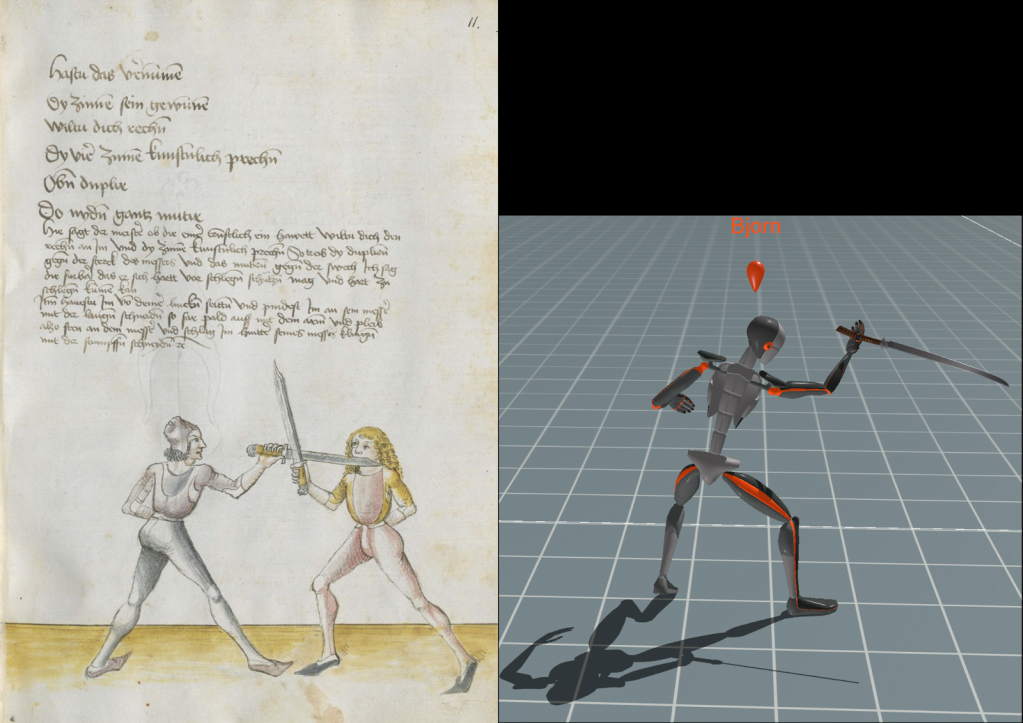 11.
hastu das vernumē
Dy zinne sein gewūnē
wiltu dich rechn
Dy vier zinnē kunstlich prechn
Obn duplir
Do nydn gantz mutir
hie sagt der meister ob dir einer ein haw wiltu dich den
rechn an im und dy zinnē kunstlich prechn So treib dy duplirn
gegn der sterck des messers und das mutirn gegn der swech Ich sag
die furbar das er sich hartt vor schlegn schützn mag und hart zu
schlegn kumen kan
Im von deiner linckn seittn und pindest im an sein messer
mit der langn schneidn so far pald auff mit dem arm und pleib
also sten an dem messer und schlag im hintter seines messers klingn
mit der schneydn
Bjorn